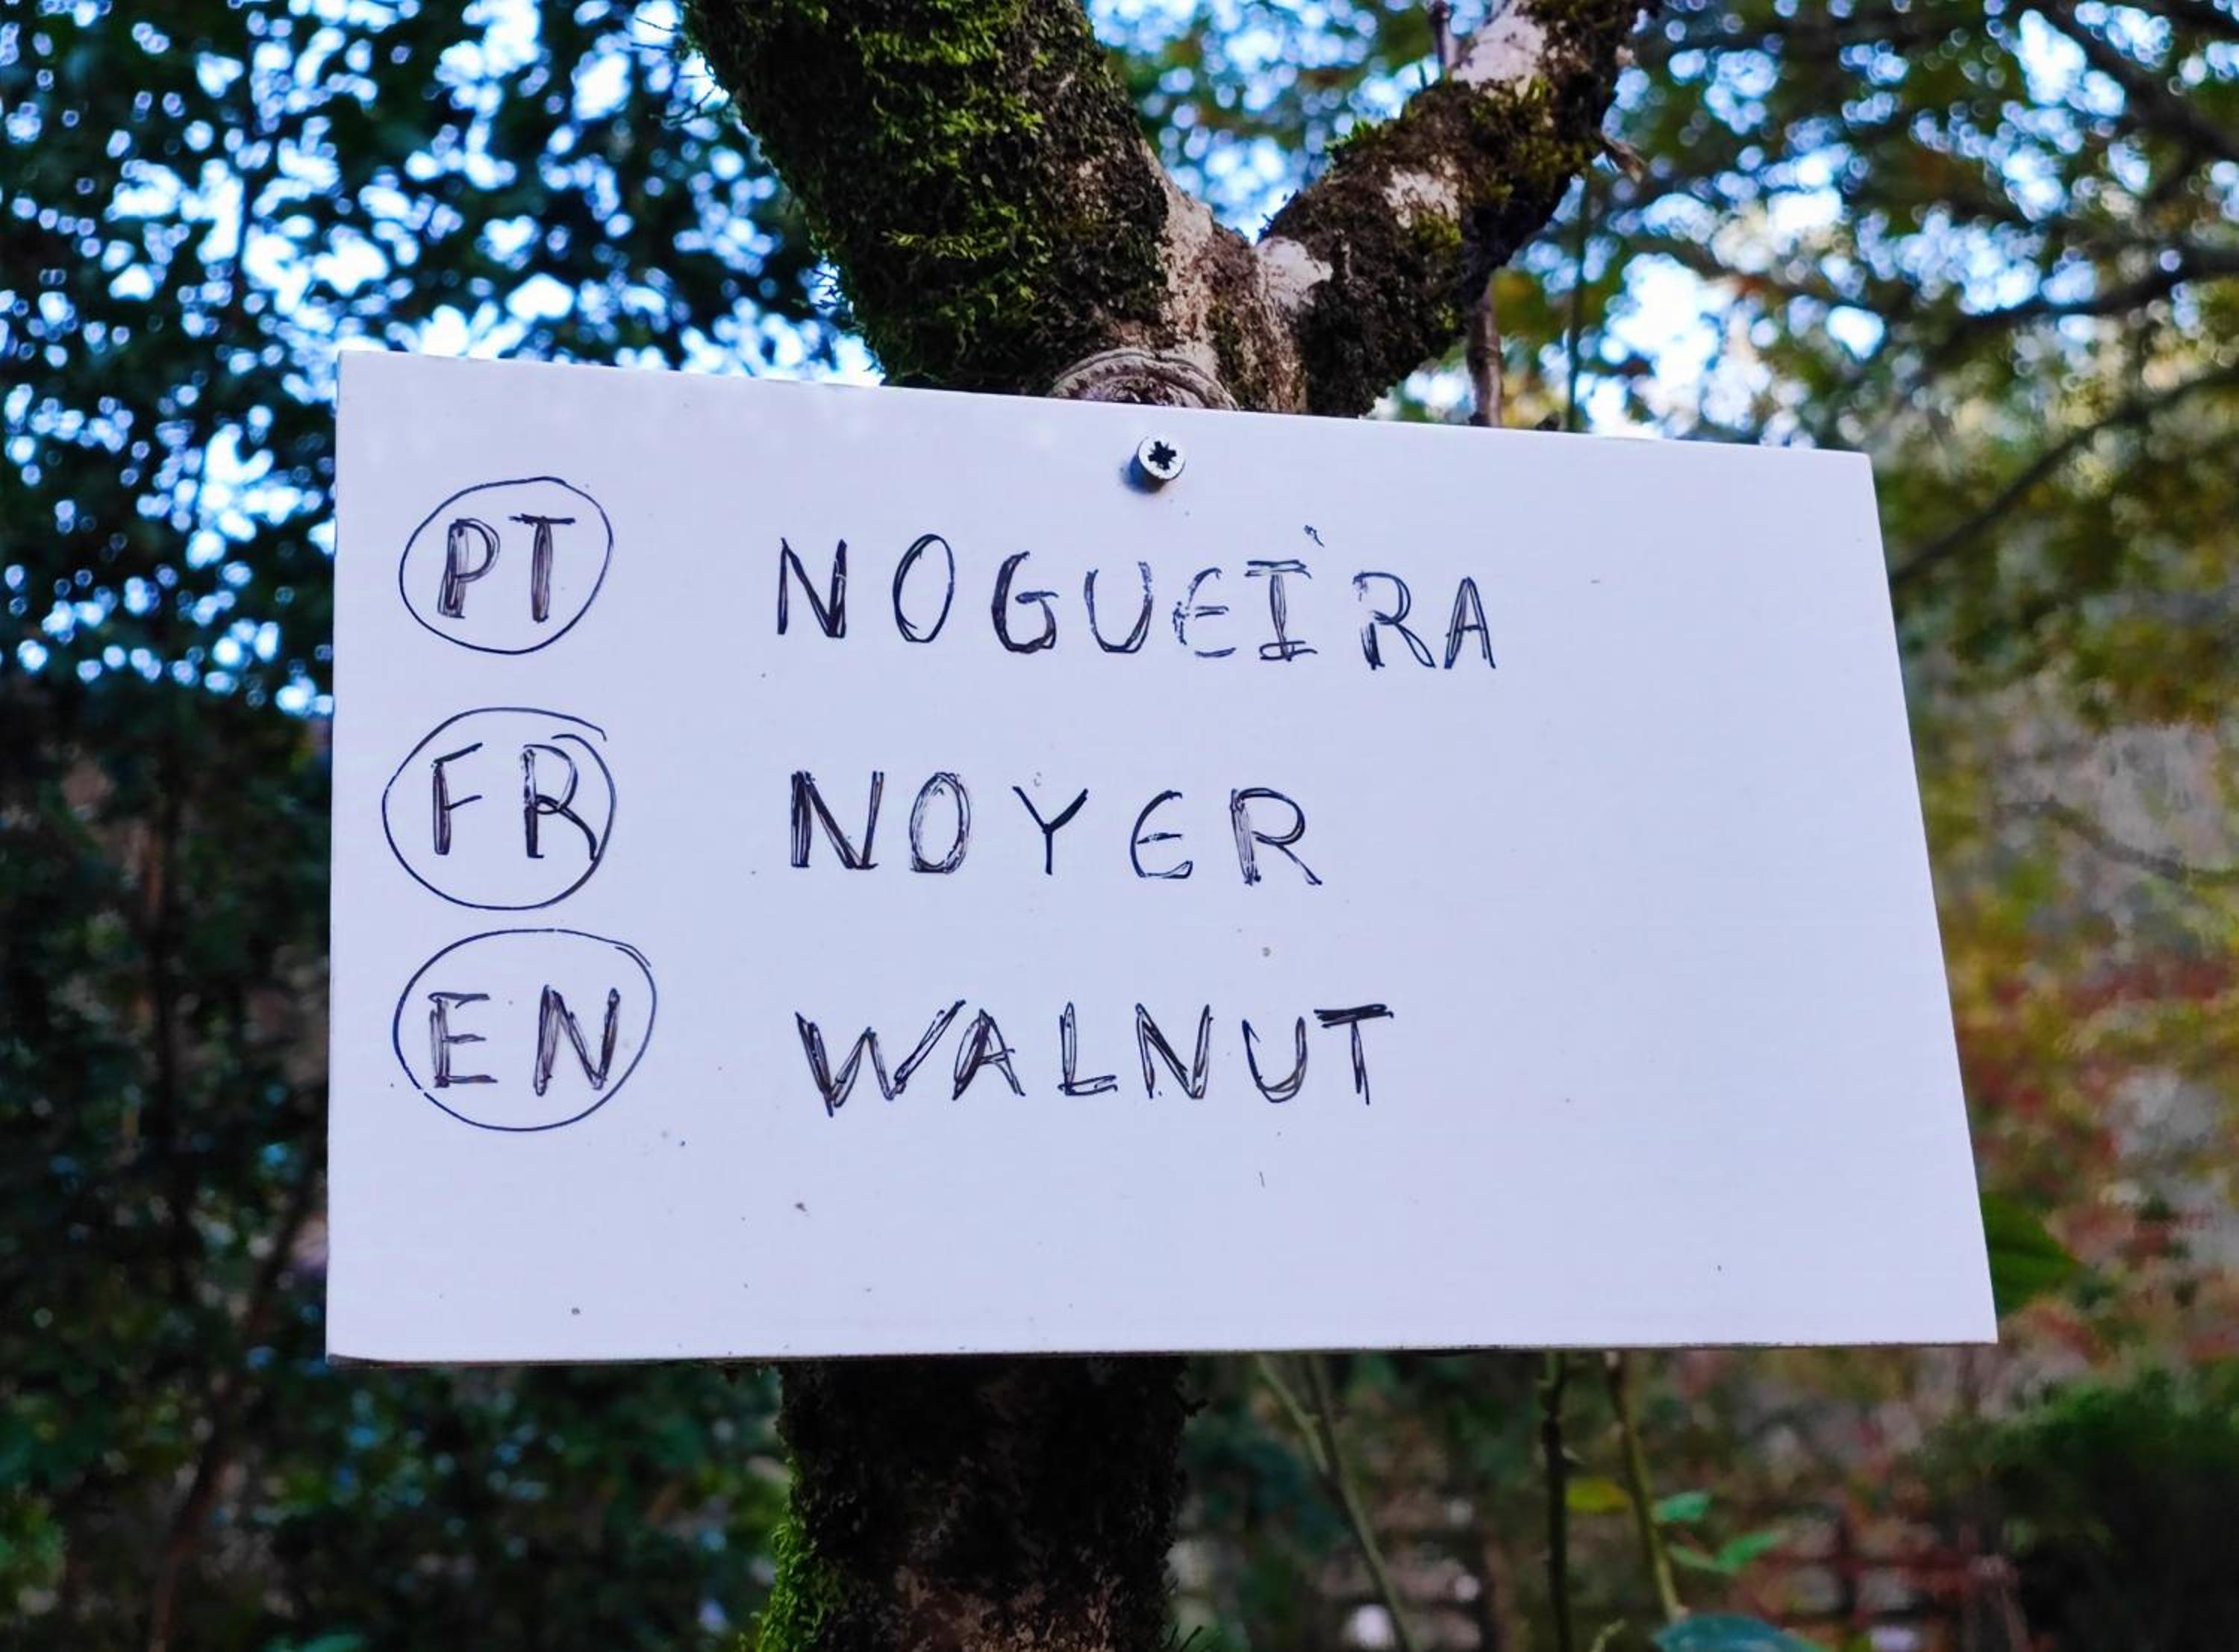 PT NOGUEIRA
FR NOYER
EN WALNUT